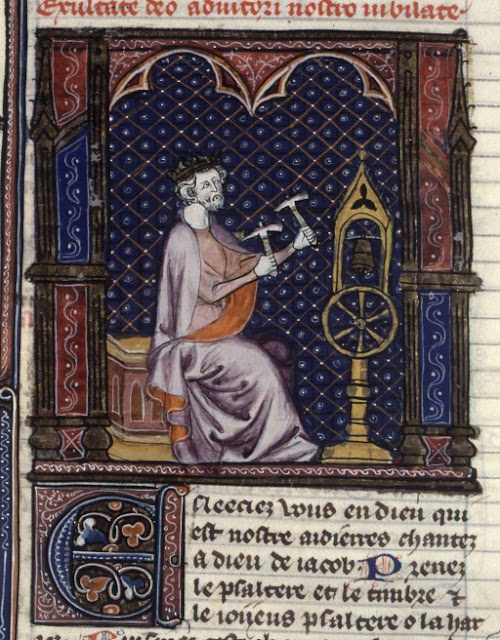 Exultate deo adiutori nostro iubilate
Esleeciez vous en dieu qui
est nostre aidierres chantez
a dieu de iacob. Prenez
le psaltere et le timbre &
le ioijeus psaltere o la har